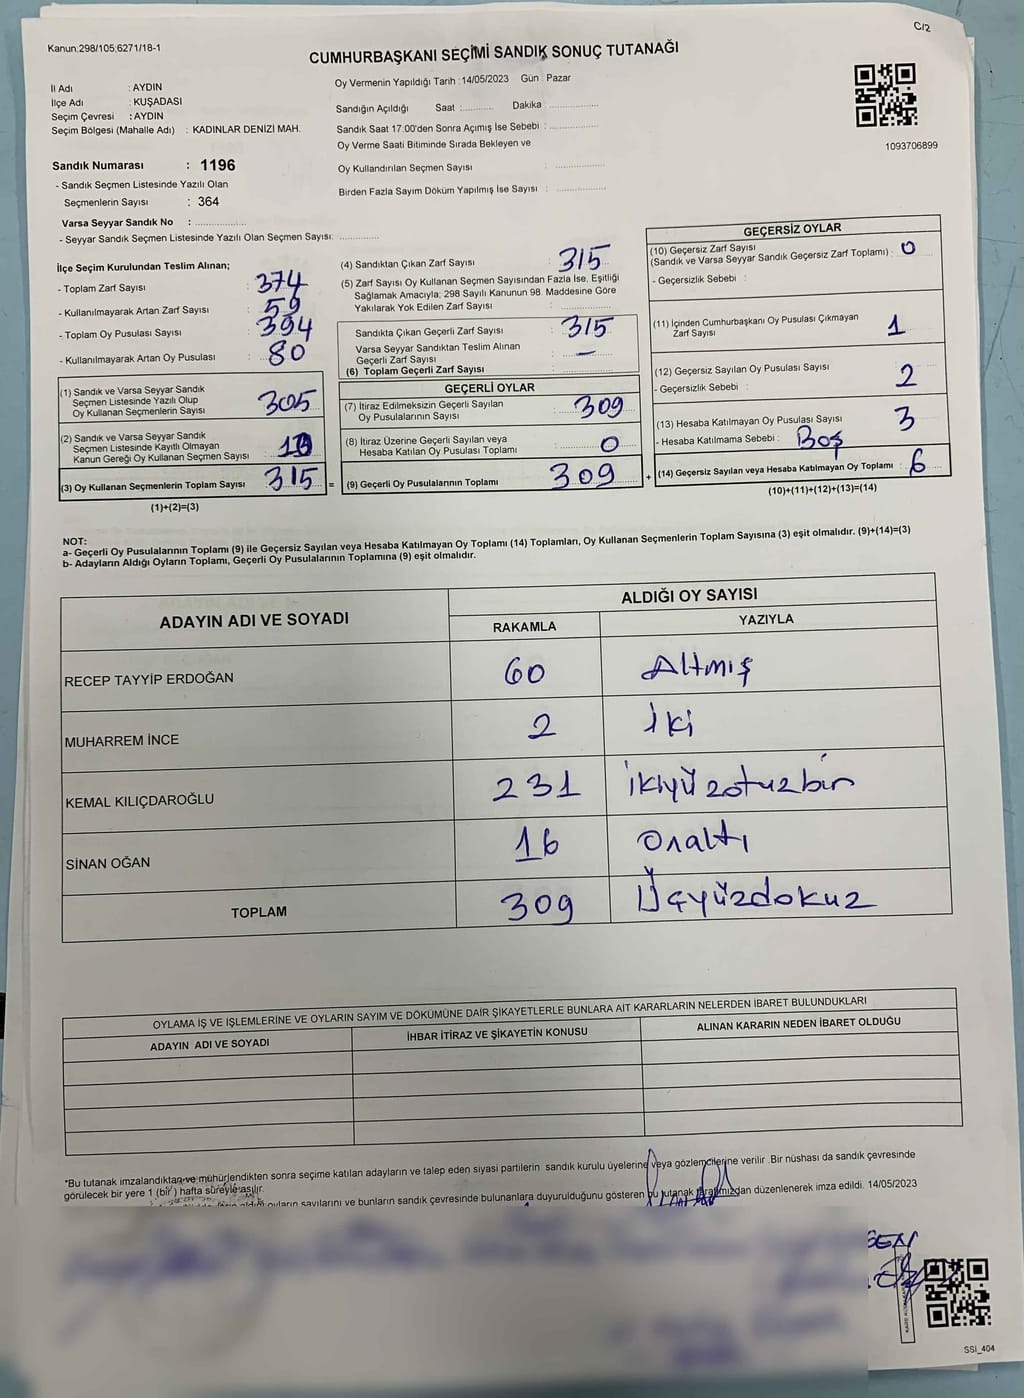 C/2
Kanun:298/105;6271/18-1
CUMHURBAŞKANI SEÇİMİ SANDIK SONUÇ TUTANAĞI
İl Adı : AYDIN
İlçe Adı : KUŞADASI
Seçim Çevresi : AYDIN
Seçim Bölgesi (Mahalle Adı) : KADINLAR DENİZİ MAH.
Sandık Numarası : 1196
- Sandık Seçmen Listesinde Yazılı Olan
Seçmenlerin Sayısı : 364
Varsa Seyyar Sandık No : ..................
- Seyyar Sandık Seçmen Listesinde Yazılı Olan Seçmen Sayısı: ..............
Oy Vermenin Yapıldığı Tarih : 14/05/2023 Gün : Pazar
Sandığın Açıldığı Saat :............ Dakika ..................
Sandık Saat 17:00'den Sonra Açımış İse Sebebi : ..................
Oy Verme Saati Bitiminde Sırada Bekleyen ve
Oy Kullandırılan Seçmen Sayısı : ..................
Birden Fazla Sayım Döküm Yapılmış İse Sayısı : ..................
1093706899
İlçe Seçim Kurulundan Teslim Alınan;
- Toplam Zarf Sayısı : 374
- Kullanılmayarak Artan Zarf Sayısı : 59
- Toplam Oy Pusulası Sayısı : 394
- Kullanılmayarak Artan Oy Pusulası : 80
(1) Sandık ve Varsa Seyyar Sandık
Seçmen Listesinde Yazılı Olup
Oy Kullanan Seçmenlerin Sayısı : 305
(2) Sandık ve Varsa Seyyar Sandık
Seçmen Listesinde Kayıtlı Olmayan
Kanun Gereği Oy Kullanan Seçmen Sayısı : 10
(3) Oy Kullanan Seçmenlerin Toplam Sayısı : 315 =
(1)+(2)=(3)
(4) Sandıktan Çıkan Zarf Sayısı : 315
(5) Zarf Sayısı Oy Kullanan Seçmen Sayısından Fazla İse, Eşitliği
Sağlamak Amacıyla, 298 Sayılı Kanunun 98. Maddesine Göre
Yakılarak Yok Edilen Zarf Sayısı : ..................
Sandıkta Çıkan Geçerli Zarf Sayısı : 315
Varsa Seyyar Sandıktan Teslim Alınan
Geçerli Zarf Sayısı : —
(6) Toplam Geçerli Zarf Sayısı : ..................
GEÇERLİ OYLAR
(7) İtiraz Edilmeksizin Geçerli Sayılan
Oy Pusulalarının Sayısı : 309
(8) İtiraz Üzerine Geçerli Sayılan veya
Hesaba Katılan Oy Pusulası Toplamı : 0
(9) Geçerli Oy Pusulalarının Toplamı : 309 +
GEÇERSİZ OYLAR
(10) Geçersiz Zarf Sayısı
(Sandık ve Varsa Seyyar Sandık Geçersiz Zarf Toplamı) : 0
- Geçersizlik Sebebi :
(11) İçinden Cumhurbaşkanı Oy Pusulası Çıkmayan
Zarf Sayısı : 1
(12) Geçersiz Sayılan Oy Pusulası Sayısı : 2
- Geçersizlik Sebebi :
(13) Hesaba Katılmayan Oy Pusulası Sayısı : 3
- Hesaba Katılmama Sebebi : Boş
(14) Geçersiz Sayılan veya Hesaba Katılmayan Oy Toplamı : 6
(10)+(11)+(12)+(13)=(14)
NOT:
a- Geçerli Oy Pusulalarının Toplamı (9) ile Geçersiz Sayılan veya Hesaba Katılmayan Oy Toplamı (14) Toplamları, Oy Kullanan Seçmenlerin Toplam Sayısına (3) eşit olmalıdır. (9)+(14)=(3)
b- Adayların Aldığı Oyların Toplamı, Geçerli Oy Pusulalarının Toplamına (9) eşit olmalıdır.
ADAYIN ADI VE SOYADI
ALDIĞI OY SAYISI
RAKAMLA YAZIYLA
RECEP TAYYİP ERDOĞAN 60 Altmış
MUHARREM İNCE 2 İki
KEMAL KILIÇDAROĞLU 231 İkiyüzotuzbir
SİNAN OĞAN 16 Onaltı
TOPLAM 309 Üçyüzdokuz
OYLAMA İŞ VE İŞLEMLERİNE VE OYLARIN SAYIM VE DÖKÜMÜNE DAİR ŞİKAYETLERLE BUNLARA AİT KARARLARIN NELERDEN İBARET BULUNDUKLARI
ADAYIN ADI VE SOYADI İHBAR İTİRAZ VE ŞİKAYETİN KONUSU ALINAN KARARIN NEDEN İBARET OLDUĞU
*Bu tutanak imzalandıktan ve mühürlendikten sonra seçime katılan adayların ve talep eden siyasi partilerin sandık kurulu üyelerine veya gözlemcilerine verilir .Bir nüshası da sandık çevresinde
görülecek bir yere 1 (bir ) hafta süreyle asılır.
oyların sayılarını ve bunların sandık çevresinde bulunanlara duyurulduğunu gösteren bu tutanak tarafımızdan düzenlenerek imza edildi. 14/05/2023
SSI_404